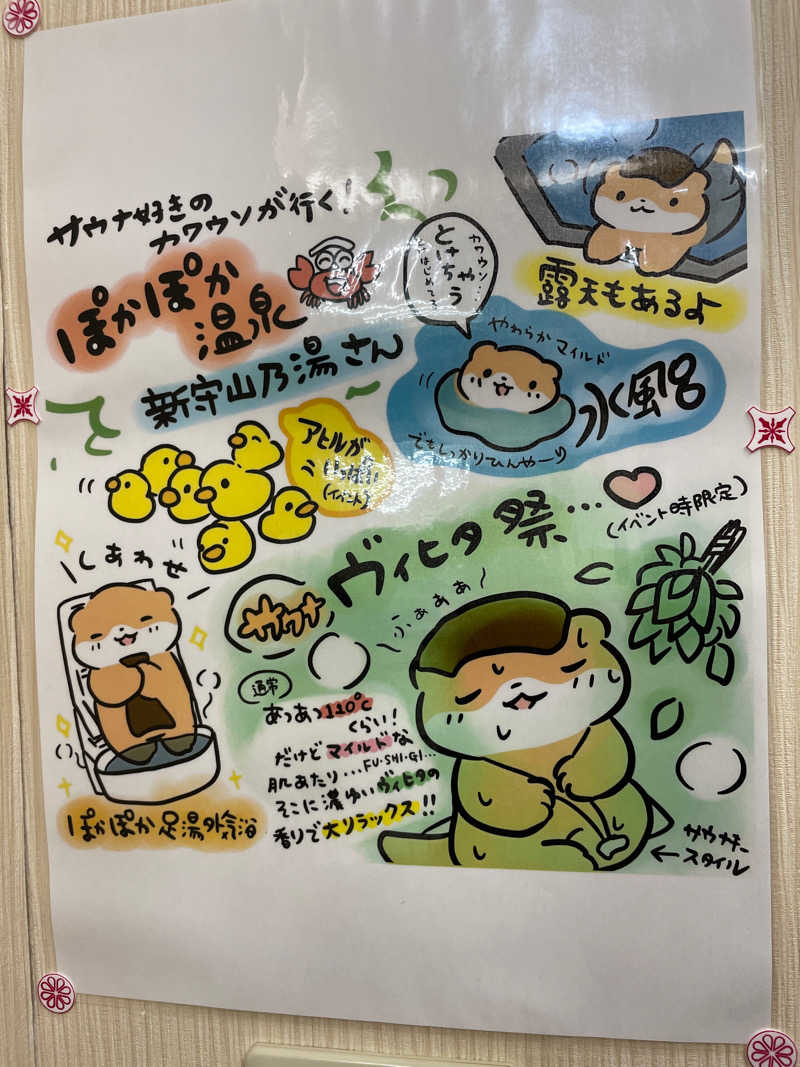 サウナ好きの
カワウソが行く!
ぽかぽか
温泉
新守山乃湯さん
カワウソ…
とけちゃう
はじめて…
露天もあるよ
やわらかマイルド
水風呂
でもしっかりひんやーり
アヒルが
いっぱい
(イベント)
しあわせ
ぽかぽか足湯外気浴
ヴィヒタ祭…
(イベント時限定)
サウナ
ふぁぁぁ〜
通常
あつあつ110℃
くらい!
だけどマイルドな
肌あたり…FU・SHI・GI…
そこに濃ゆいヴィヒタの
香りで大リラックス!!
サウナー
←スタイル